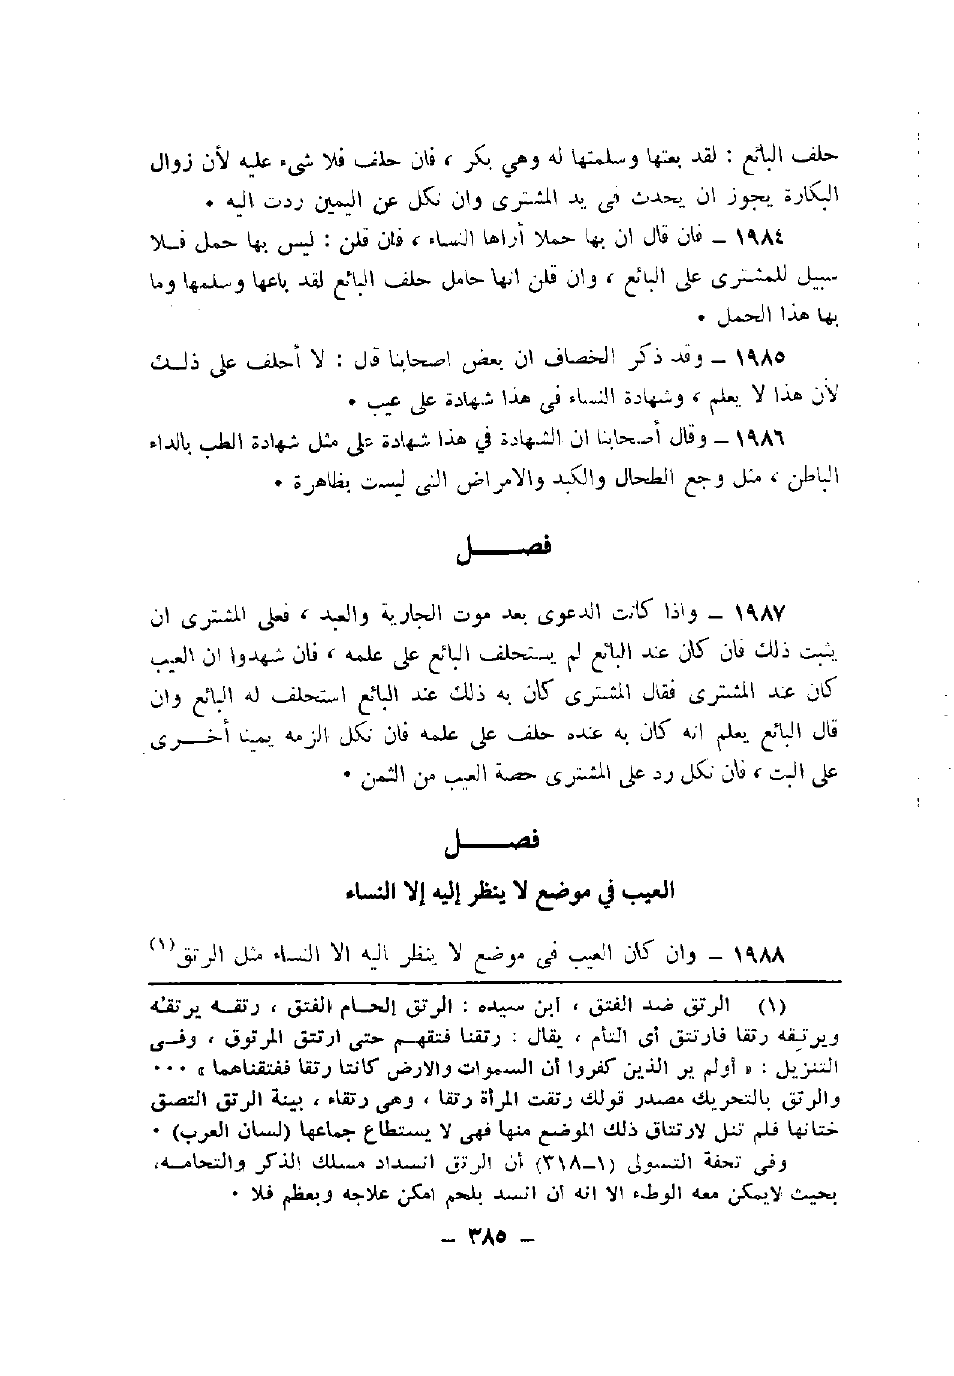 حلف البائع : لقد بعتها وسلمتها له وهي بكر ، فان حلف فلا شىء عليه لأن زوال
البكارة يجوز ان يحدث فى يد المشترى وان نكل عن اليمين ردت اليه ٠
١٩٨٤ – فان قال ان بها حملا أراها النساء ، فان قلن : ليس بها حمل فـلا
سبيل للمشترى على البائع ، وان قلن انها حامل حلف البائع لقد باعها وسلمها وما
بها هذا الحمل ٠
١٩٨٥ – وقد ذكر الخصاف ان بعض اصحابنا قال : لا أحلف على ذلـك
لأن هذا لا يعلم ، وشهادة النساء فى هذا شهادة على عيب ٠
١٩٨٦ – وقال أصحابنا ان الشهادة في هذا شهادة على مثل شهادة الطب بالداء
الباطن ، مثل وجع الطحال والكبد والامراض التى ليست بظاهرة ٠
فصـــــل
١٩٨٧ – واذا كانت الدعوى بعد موت الجارية والعبد ، فعلى المشترى ان
يثبت ذلك فان كان عند البائع لم يستحلف البائع على علمه ، فان شهدوا ان العيب
كان عند المشترى فقال المشترى كان به ذلك عند البائع استحلف له البائع وان
قال البائع يعلم انه كان به عنده حلف على علمه فان نكل الزمه يمينا أخـــرى
على البت ، فان نكل رد على المشترى حصة العيب من الثمن ٠
فصـــــل
العيب في موضع لا ينظر إليه إلا النساء
١٩٨٨ – وان كان العيب فى موضع لا ينظر اليه الا النساء مثل الرتق(١)
(١) الرتق ضد الفتق ، ابن سيده : الرتق إلحـام الفتق ، رتقـه يرتقه
ويرتقه رتقا فارتتق أى التأم ، يقال : رتقنا فتقهـم حتى ارتتق المرتوق ، وفـى
التنزيل : « أولم ير الذين كفروا أن السموات والارض كانتا رتقا ففتقناهما » ٠٠٠
والرتق بالتحريك مصدر قولك رتقت المرأة رتقا ، وهى رتقاء ، بينة الرتق التصق
ختانها فلم تنل لارتتاق ذلك الموضع منها فهى لا يستطاع جماعها (لسان العرب) ٠
وفى تحفة التسولى (١–٣١٨) أن الرتق انسداد مسلك الذكر والتحامـه،
بحيث لايمكن معه الوطء الا انه أن انسد بلحم امكن علاجه وبعظم فلا ٠
– ٣٨٥ –